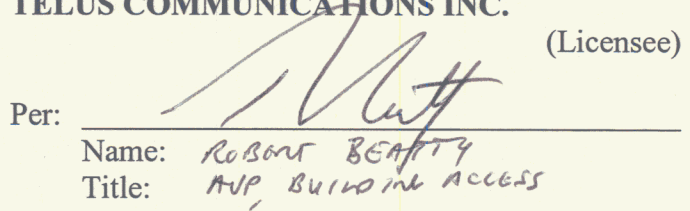 TELUS COMMUNICATIONS INC.
(Licensee)
Per:
Name: ROBERT BEATTY
Title: AVP, BUILDING ACCESS